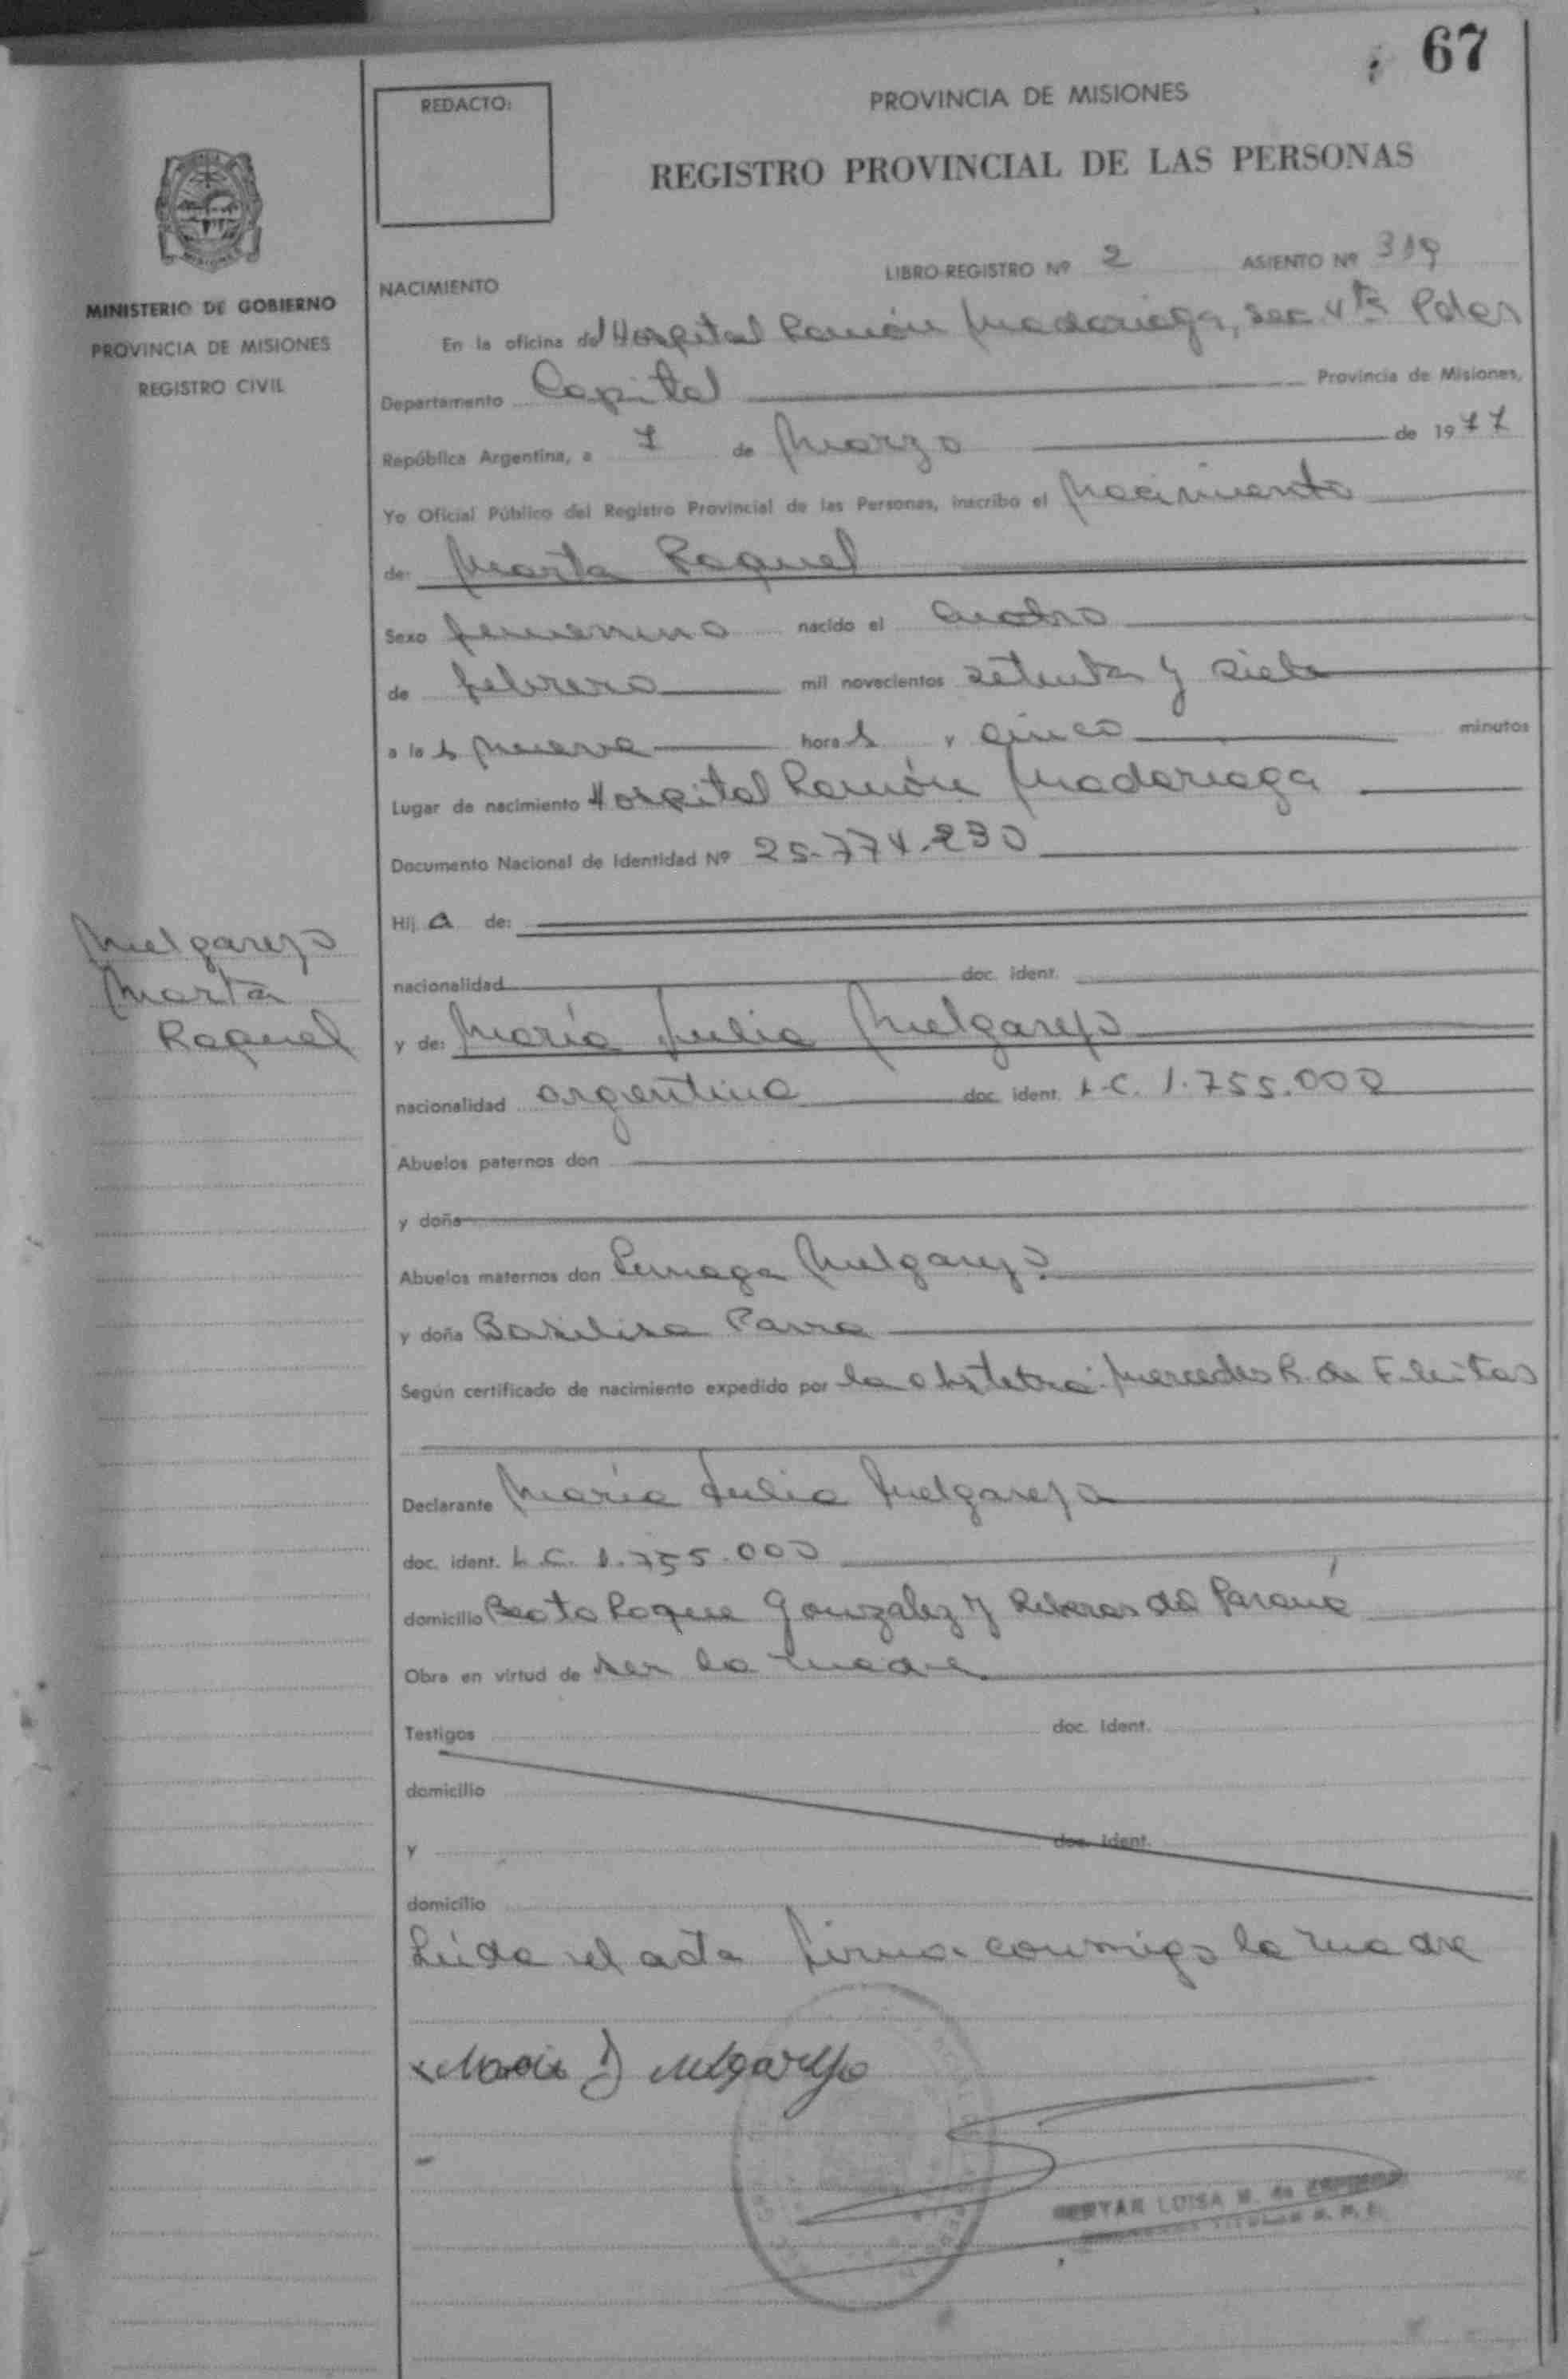 67
REDACTO:
PROVINCIA DE MISIONES
REGISTRO PROVINCIAL DE LAS PERSONAS
MISIONES
MINISTERIO DE GOBIERNO
PROVINCIA DE MISIONES
REGISTRO CIVIL
LIBRO-REGISTRO Nº 2 ASIENTO Nº 319
NACIMIENTO
En la oficina del Hospital Ramón Madariaga, sec. 4ta Pdas
Departamento Capital Provincia de Misiones,
República Argentina, a 7 de Marzo de 1977
Yo Oficial Público del Registro Provincial de las Personas, inscribo el Nacimiento
de: Marta Raquel
Sexo femenino nacido el cuatro
de febrero mil novecientos setenta y siete
a las nueve horas y cinco minutos
Lugar de nacimiento Hospital Ramón Madariaga
Documento Nacional de Identidad Nº 25.774.230
Hija de:
nacionalidad doc. ident.
Melgarejo
Marta
Raquel
y de: María Julia Melgarejo
nacionalidad argentina doc. ident. L.C. 1.755.000
Abuelos paternos don
y doña
Abuelos maternos don Melgarejo
y doña Basilisa Parra
Según certificado de nacimiento expedido por la obstetra: Mercedes R. de Fleitas
Declarante María Julia Melgarejo
doc. ident. L.C. 1.755.000
domicilio Beato Roque Gonzalez y Riberas del Paraná
Obra en virtud de ser la madre
Testigos doc. Ident.
domicilio
y doc. Ident.
domicilio
Leída el acta firma conmigo la madre
x Maria J Melgarejo
LUISA M. de